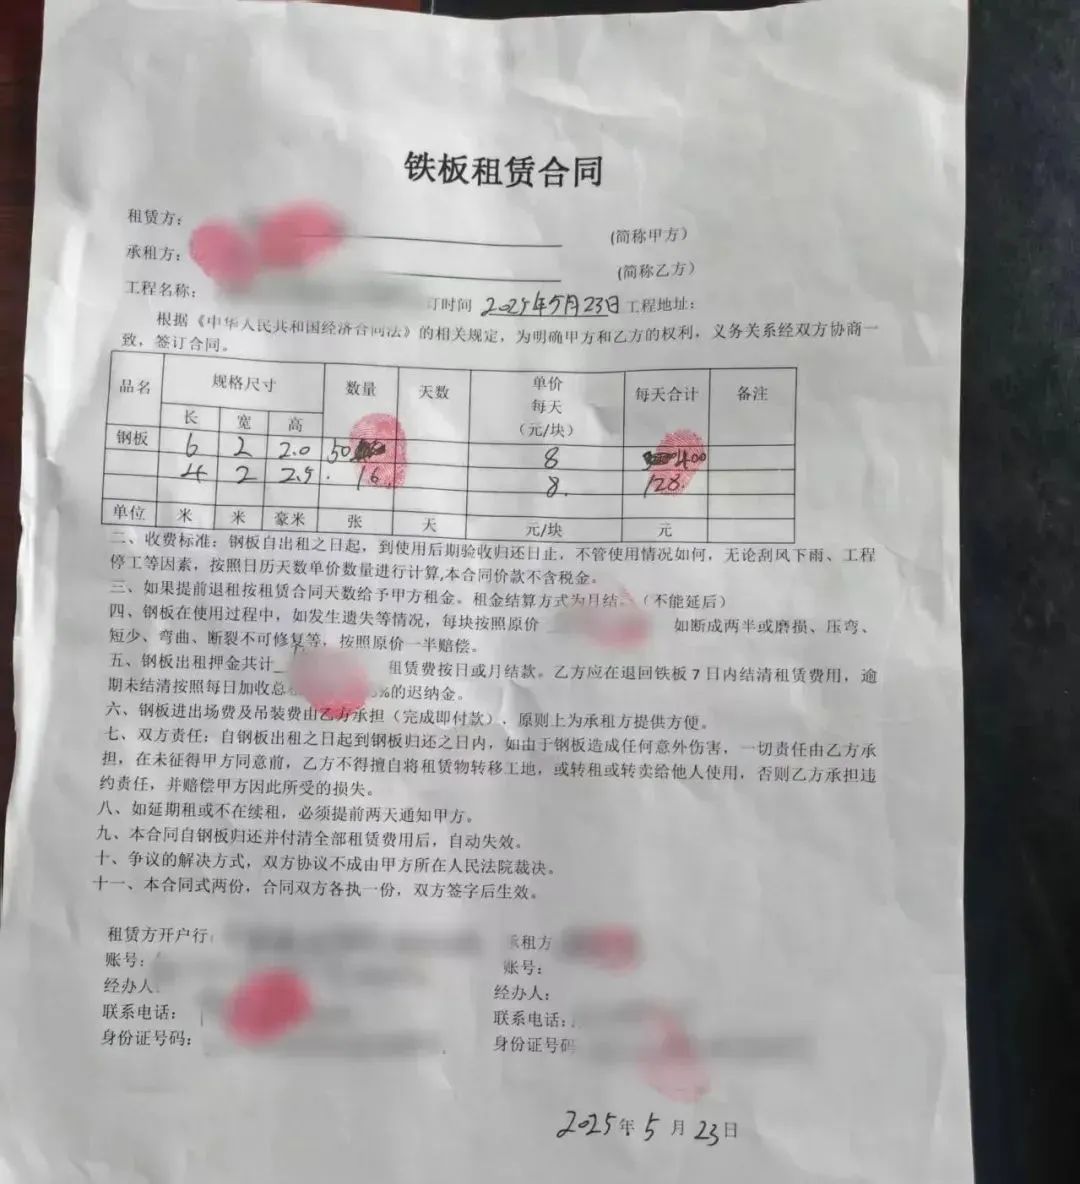 铁板租赁合同
租赁方： (简称甲方)
承租方： (简称乙方)
工程名称： 订时间 2025年5月23日 工程地址：
根据《中华人民共和国经济合同法》的相关规定，为明确甲方和乙方的权利，义务关系经双方协商一
致，签订合同。
品名 规格尺寸 数量 天数 单价 每天 （元/块） 每天合计 备注
长 宽 高
钢板 6 2 2.0 50 8 400
4 2 2.5 16 8 128
单位 米 米 豪米 张 天 元/块 元
二、收费标准：钢板自出租之日起，到使用后期验收归还日止，不管使用情况如何，无论刮风下雨、工程
停工等因素，按照日历天数单价数量进行计算,本合同价款不含税金。
三、如果提前退租按租赁合同天数给予甲方租金。租金结算方式为月结。（不能延后）
四、钢板在使用过程中，如发生遗失等情况，每块按照原价 如断成两半或磨损、压弯、
短少、弯曲、断裂不可修复等，按照原价一半赔偿。
五、钢板出租押金共计 租赁费按日或月结款。乙方应在退回铁板 7 日内结清租赁费用，逾
期未结清按照每日加收总 %的迟纳金。
六、钢板进出场费及吊装费由乙方承担（完成即付款），原则上为承租方提供方便。
七、双方责任：自钢板出租之日起到钢板归还之日内，如由于钢板造成任何意外伤害，一切责任由乙方承
担，在未征得甲方同意前，乙方不得擅自将租赁物转移工地，或转租或转卖给他人使用，否则乙方承担违
约责任，并赔偿甲方因此所受的损失。
八、如延期租或不在续租，必须提前两天通知甲方。
九、本合同自钢板归还并付清全部租赁费用后，自动失效。
十、争议的解决方式，双方协议不成由甲方所在人民法院裁决。
十一、本合同式两份，合同双方各执一份，双方签字后生效。
租赁方开户行 承租方
账号： 账号：
经办人 经办人：
联系电话： 联系电话：
身份证号码： 身份证号码
2025年 5 月 23日